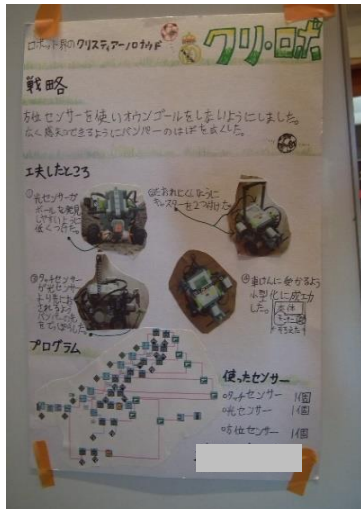 ロボット界のクリスティアーノロナウド
クリ・ロボ
戦略
方位センサーを使いオウンゴールをしないようにしました。
広く感知できるようにバンパーのはばを広くした。
工夫したところ
①光センサーが
ボールを発見
しやすいように
低くつけた。
②たおれにくいように
キャスターを2つ付けた。
③タッチセンサー
が光センサー
より
バンパー
④車けんに受かるよう
小型化に成功
した。
プログラム
使ったセンサー
タッチセンサー 1個
光センサー 1個
方位センサー 1個